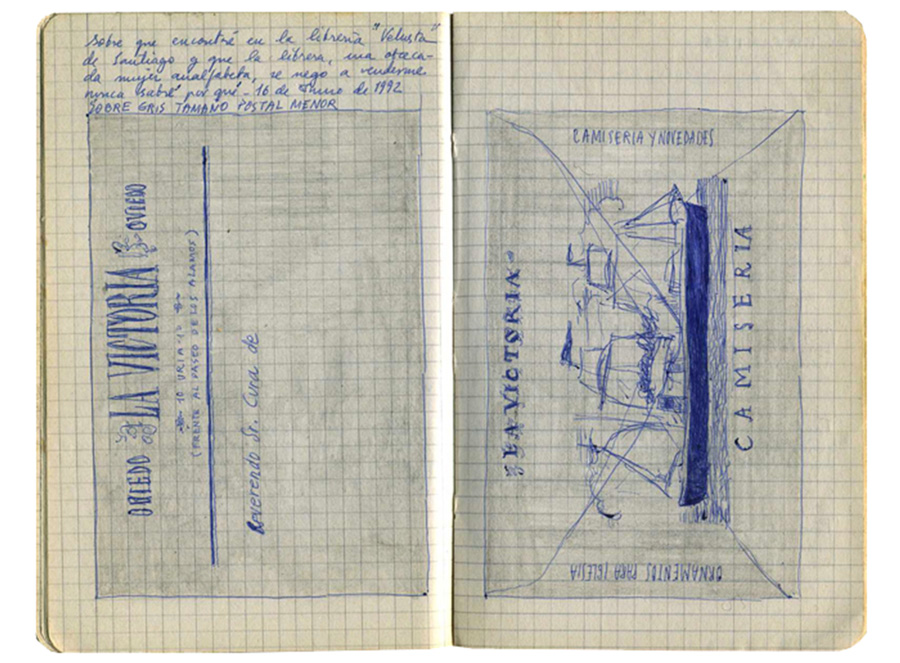 Sobre que encontré en la librería "Vetusta"
de Santiago y que la librera, una ofusca-
da mujer analfabeta, se negó a venderme
nunca sabré por qué - 16 de Junio de 1992
SOBRE GRIS TAMAÑO POSTAL MENOR
OBIEDO LA VICTORIA OVIEDO
10 URIA 10
(FRENTE AL PASEO DE LOS ALAMOS)
Reverendo Sr. Cura de
CAMISERIA Y NOVEDADES
LA VICTORIA
CAMISERIA
ORNAMENTOS PARA IGLESIA